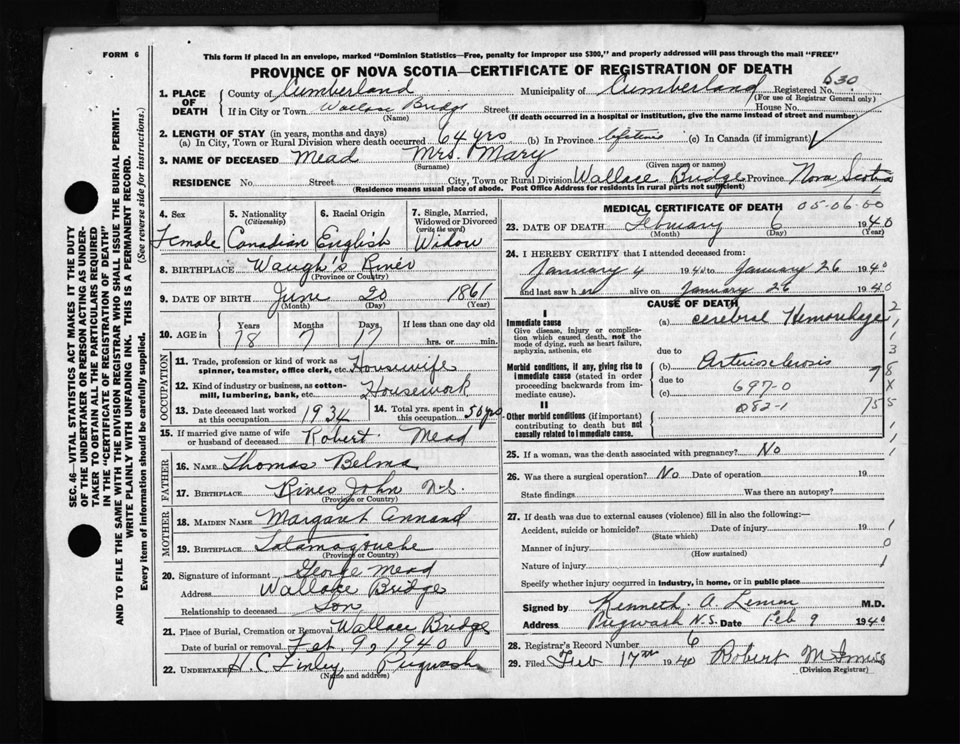 FORM 6
This form if placed in an envelope, marked "Dominion Statistics—Free, penalty for improper use $300," and properly addressed will pass through the mail "FREE"
PROVINCE OF NOVA SCOTIA—CERTIFICATE OF REGISTRATION OF DEATH
630
SEC. 46—VITAL STATISTICS ACT MAKES IT THE DUTY
OF THE UNDERTAKER OR PERSON ACTING AS UNDER-
TAKER TO OBTAIN ALL THE PARTICULARS REQUIRED
IN THE "CERTIFICATE OF REGISTRATION OF DEATH"
AND TO FILE THE SAME WITH THE DIVISION REGISTRAR WHO SHALL ISSUE THE BURIAL PERMIT.
WRITE PLAINLY WITH UNFADING INK. THIS IS A PERMANENT RECORD.
Every item of information should be carefully supplied. (See reverse side for instructions.)
1. PLACE OF DEATH County of Cumberland Municipality of Cumberland Registered No.
(For use of Registrar General only)
If in City or Town Wallace Bridge Street House No.
(Name) (If death occurred in a hospital or institution, give the name instead of street and number)
2. LENGTH OF STAY (in years, months and days)
(a) In City, Town or Rural Division where death occurred 64 yrs (b) In Province lifetime (c) In Canada (if immigrant)
3. NAME OF DECEASED Mead Mrs. Mary
(Surname) (Given name or names)
RESIDENCE No. Street City, Town or Rural Division Wallace Bridge Province Nova Scotia
(Residence means usual place of abode. Post Office Address for residents in rural parts not sufficient)
4. Sex Female
5. Nationality (Citizenship) Canadian
6. Racial Origin English
7. Single, Married, Widowed or Divorced (write the word) Widow
8. BIRTHPLACE Waugh's River
(Province or Country)
9. DATE OF BIRTH June 20 1861
(Month) (Day) (Year)
10. AGE in Years 78 Months 7 Days 17 If less than one day hrs. or min.
OCCUPATION
11. Trade, profession or kind of work as spinner, teamster, office clerk, etc. Housewife
12. Kind of industry or business, as cotton-mill, lumbering, bank, etc. Housework
13. Date deceased last worked at this occupation 1934
14. Total yrs. spent in this occupation 50 yrs
15. If married give name of wife or husband of deceased Robert Mead
FATHER
16. NAME Thomas
17. BIRTHPLACE River John N.S.
(Province or Country)
MOTHER
18. MAIDEN NAME Margaret Annand
19. BIRTHPLACE Tatamagouche
(Province or Country)
20. Signature of informant George Mead
Address Wallace Bridge
Relationship to deceased Son
21. Place of Burial, Cremation or Removal Wallace Bridge
Date of burial or removal Feb. 9, 1940
22. UNDERTAKER H. C. Finley Pugwash
(Name and address)
MEDICAL CERTIFICATE OF DEATH 05-06-00
23. DATE OF DEATH February 6 1940
(Month) (Day) (Year)
24. I HEREBY CERTIFY that I attended deceased from:
January 4 1940 to January 26 1940
and last saw her alive on January 26 1940
CAUSE OF DEATH
I
Immediate cause
Give disease, injury or complication which caused death, not the mode of dying, such as heart failure, asphyxia, asthenia, etc
(a) Cerebral Hemorrhage
due to
Morbid conditions, if any, giving rise to immediate cause (stated in order proceeding backwards from immediate cause).
(b) Arteriosclerosis
due to
(c) 697-0
082-1
II
Other morbid conditions (if important) contributing to death but not causally related to immediate cause.
25. If a woman, was the death associated with pregnancy? No
26. Was there a surgical operation? No Date of operation 19
State findings Was there an autopsy?
27. If death was due to external causes (violence) fill in also the following:—
Accident, suicide or homicide? Date of injury 19
(State which)
Manner of injury
(How sustained)
Nature of injury
Specify whether injury occurred in industry, in home, or in public place
Signed by Kenneth A. M.D.
Address Pugwash N.S. Date Feb 9 1940
28. Registrar's Record Number 6
29. Filed Feb 17th 1940 Robert
(Division Registrar)